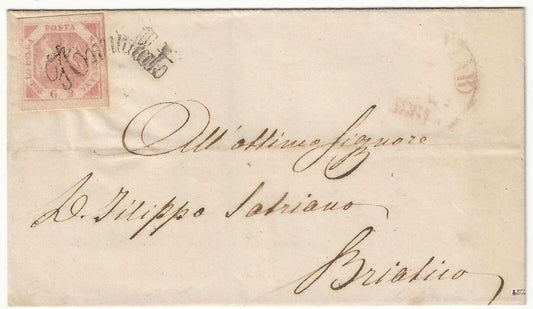 POSTA
G 2
Annullato
1861
All'ottimo Signore
D. Filippo Satriano
Briatico